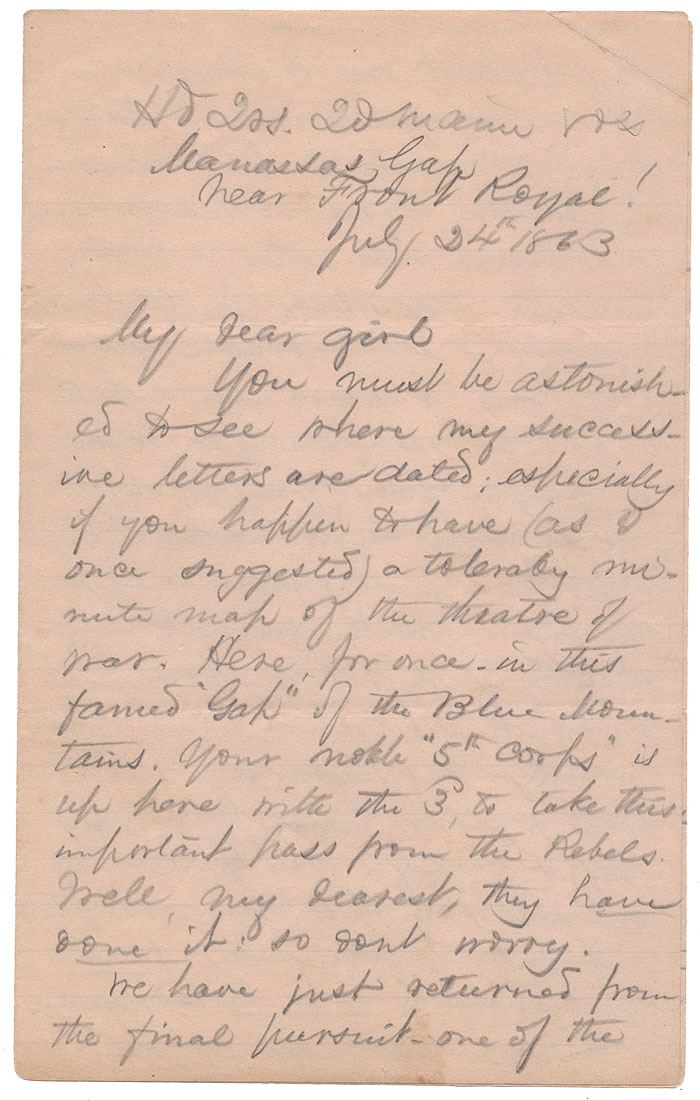 Hd Qrs. 2d Maine Vols
Manassas Gap
near Front Royal!
July 24th 1863
My dear girl
You must be astonish-
ed to see where my success-
ive letters are dated; especially
if you happen to have (as I
once suggested) a toleraby mi-
nute map of the theatre of
war. Here, for once - in this
famed "Gap" of the Blue Moun-
tains. Your noble "5th Corps" is
up here with the 3, to take this
important pass from the Rebels.
Well, my dearest, they have
done it: so dont worry.
We have just returned from
the final pursuit - one of the